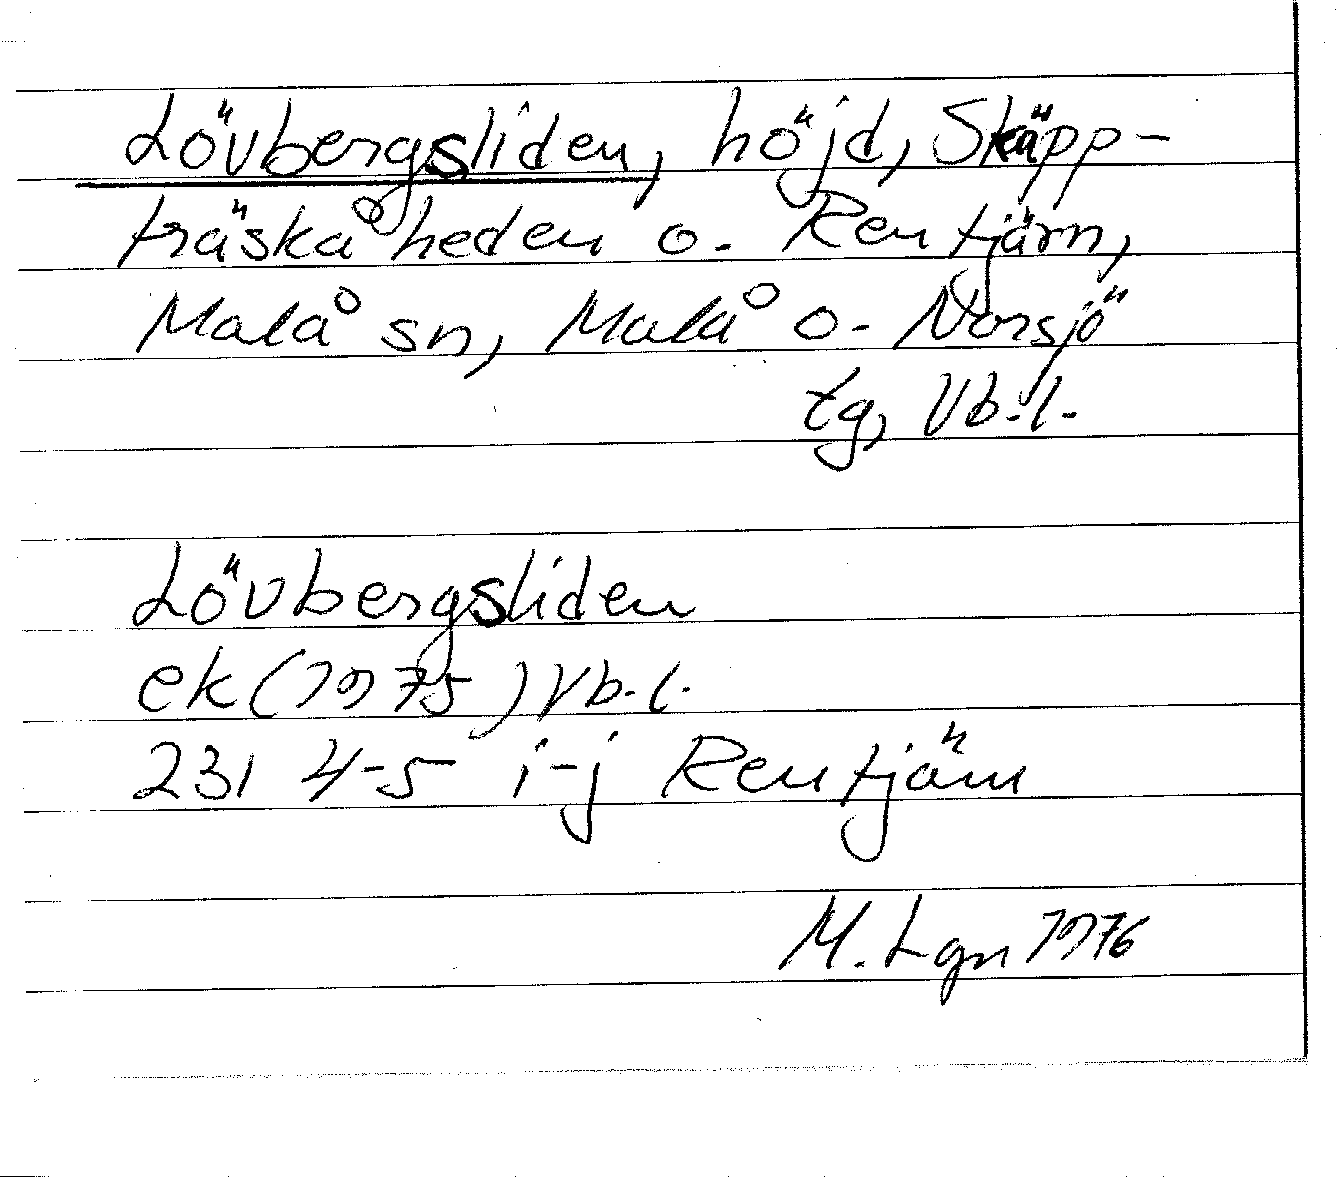 Lövbergsliden, höjd, Skäpp-
träskåheden o. Rentjärn,
Malå sn, Malå o. Norsjö
tg, Vb.l.
Lövbergsliden
ek (1975) Vb.l.
231 4-5 i-j Rentjärn
M. Lgn 1976